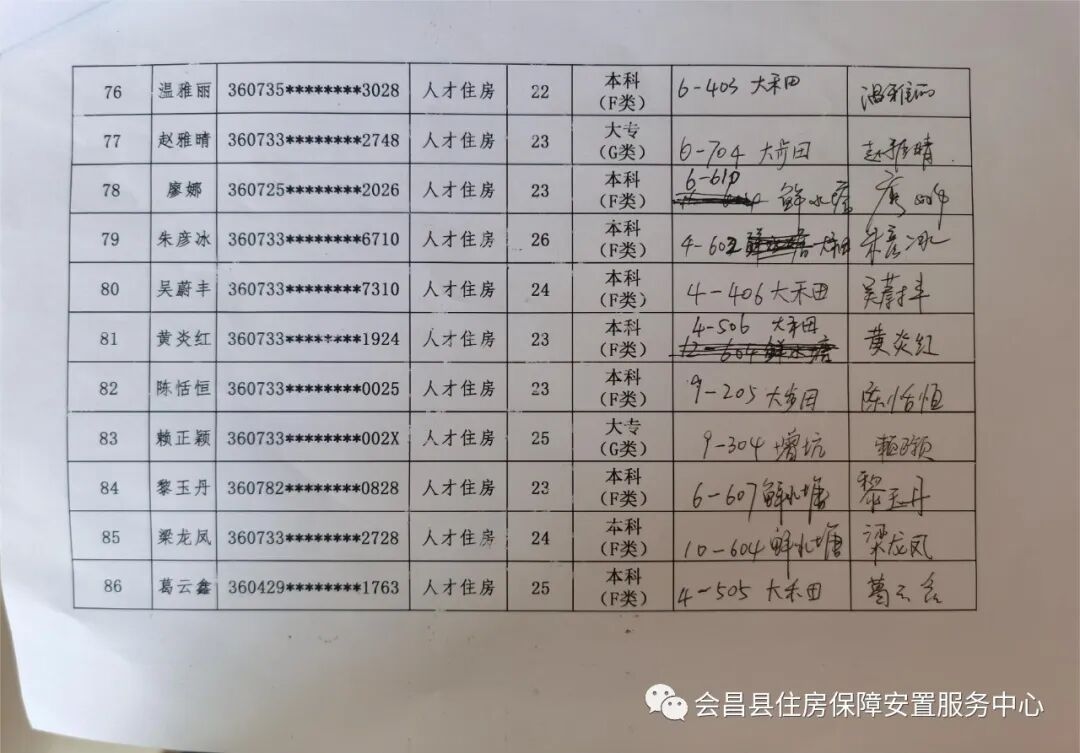 76 温雅丽 360735********3028 人才住房 22 本科(F类) 6-403 大禾田 温雅丽
77 赵雅晴 360733********2748 人才住房 23 大专(G类) 6-704 大禾田 赵雅晴
78 廖娜 360725********2026 人才住房 23 本科(F类) 6-610 鲜水塘 廖娜
79 朱彦冰 360733********6710 人才住房 26 本科(F类) 4-602 大禾田 朱彦冰
80 吴蔚丰 360733********7310 人才住房 24 本科(F类) 4-406 大禾田 吴蔚丰
81 黄炎红 360733********1924 人才住房 23 本科(F类) 4-506 大禾田 12-604 鲜水塘 黄炎红
82 陈恬恒 360733********0025 人才住房 23 本科(F类) 9-205 大禾田 陈恬恒
83 赖正颖 360733********002X 人才住房 25 大专(G类) 9-304 增坑 赖正颖
84 黎玉丹 360782********0828 人才住房 23 本科(F类) 6-607 鲜水塘 黎玉丹
85 梁龙凤 360733********2728 人才住房 24 本科(F类) 10-604 鲜水塘 梁龙凤
86 葛云鑫 360429********1763 人才住房 25 本科(F类) 4-505 大禾田 葛云鑫
会昌县住房保障安置服务中心